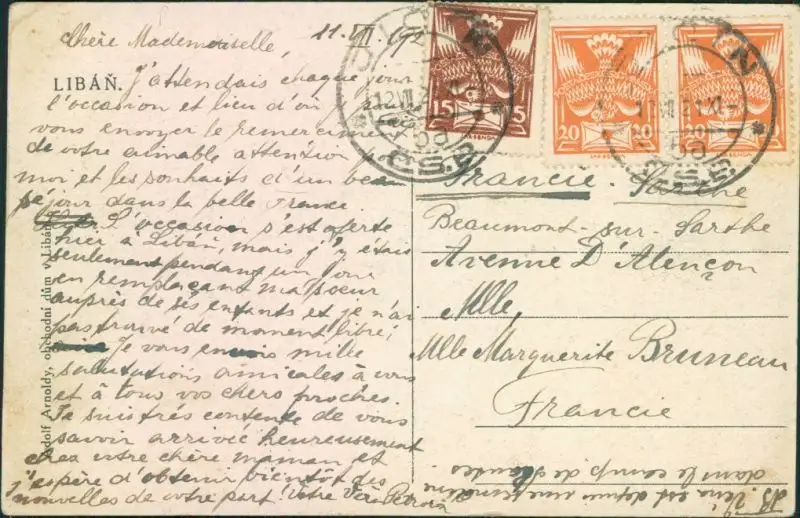 Chère Mademoiselle, 11. VII 192
LIBÁŇ.
J'attendais chaque jour
l'occasion et lieu d'où je
vous envoyer le remerciment
de votre aimable attention à
moi et les souhaits d'un beau
séjour dans la belle France
L'occasion s'est oferte
hier à Libáň, mais j'y étais
seulement pendant un jour
en remplaçant ma soeur
auprès de ses enfants et je n'ai
pas trouvé de moment libre;
Je vous envois mille
salutations amicales à vous
et à tous vos chers proches.
Je suis très contente de vous
savoir arrivée heureusement
chez votre chère maman et
j'espère d'obtenir bientôt des
nouvelles de votre part. Votre Věra Petrová
Adolf Arnoldy, obchodní dům v Libáni
15 15
20 20
20 20
JIČÍN
Č.S.P.
Francie. Sarthe
Beaumont-sur-Sarthe
Avenue D'Alençon
Mlle,
Mlle Marguerite Bruneau
Francie
PS. Věra est depuis une semaine
dans le camp de scoutes.